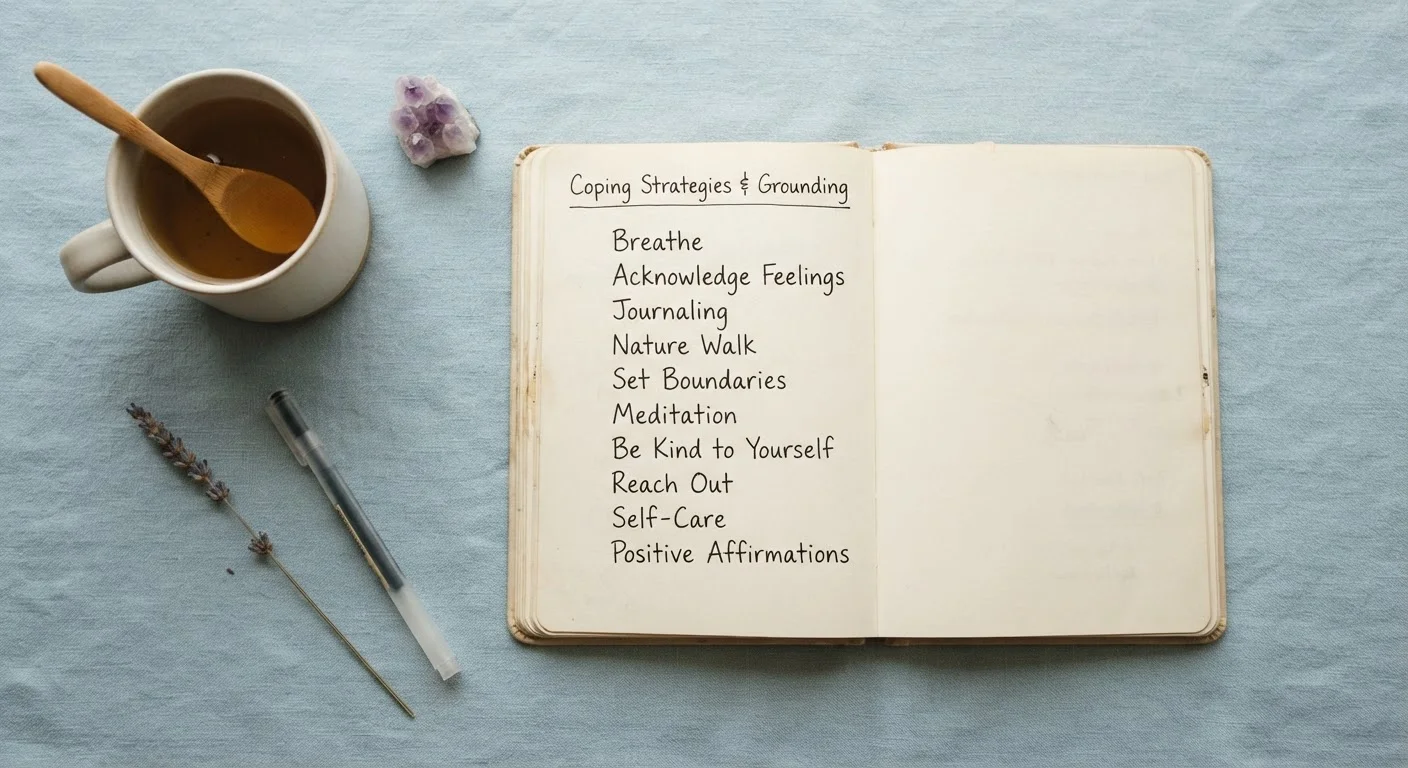 Coping Strategies & Grounding
Breathe
Acknowledge Feelings
Journaling
Nature Walk
Set Boundaries
Meditation
Be Kind to Yourself
Reach Out
Self-Care
Positive Affirmations